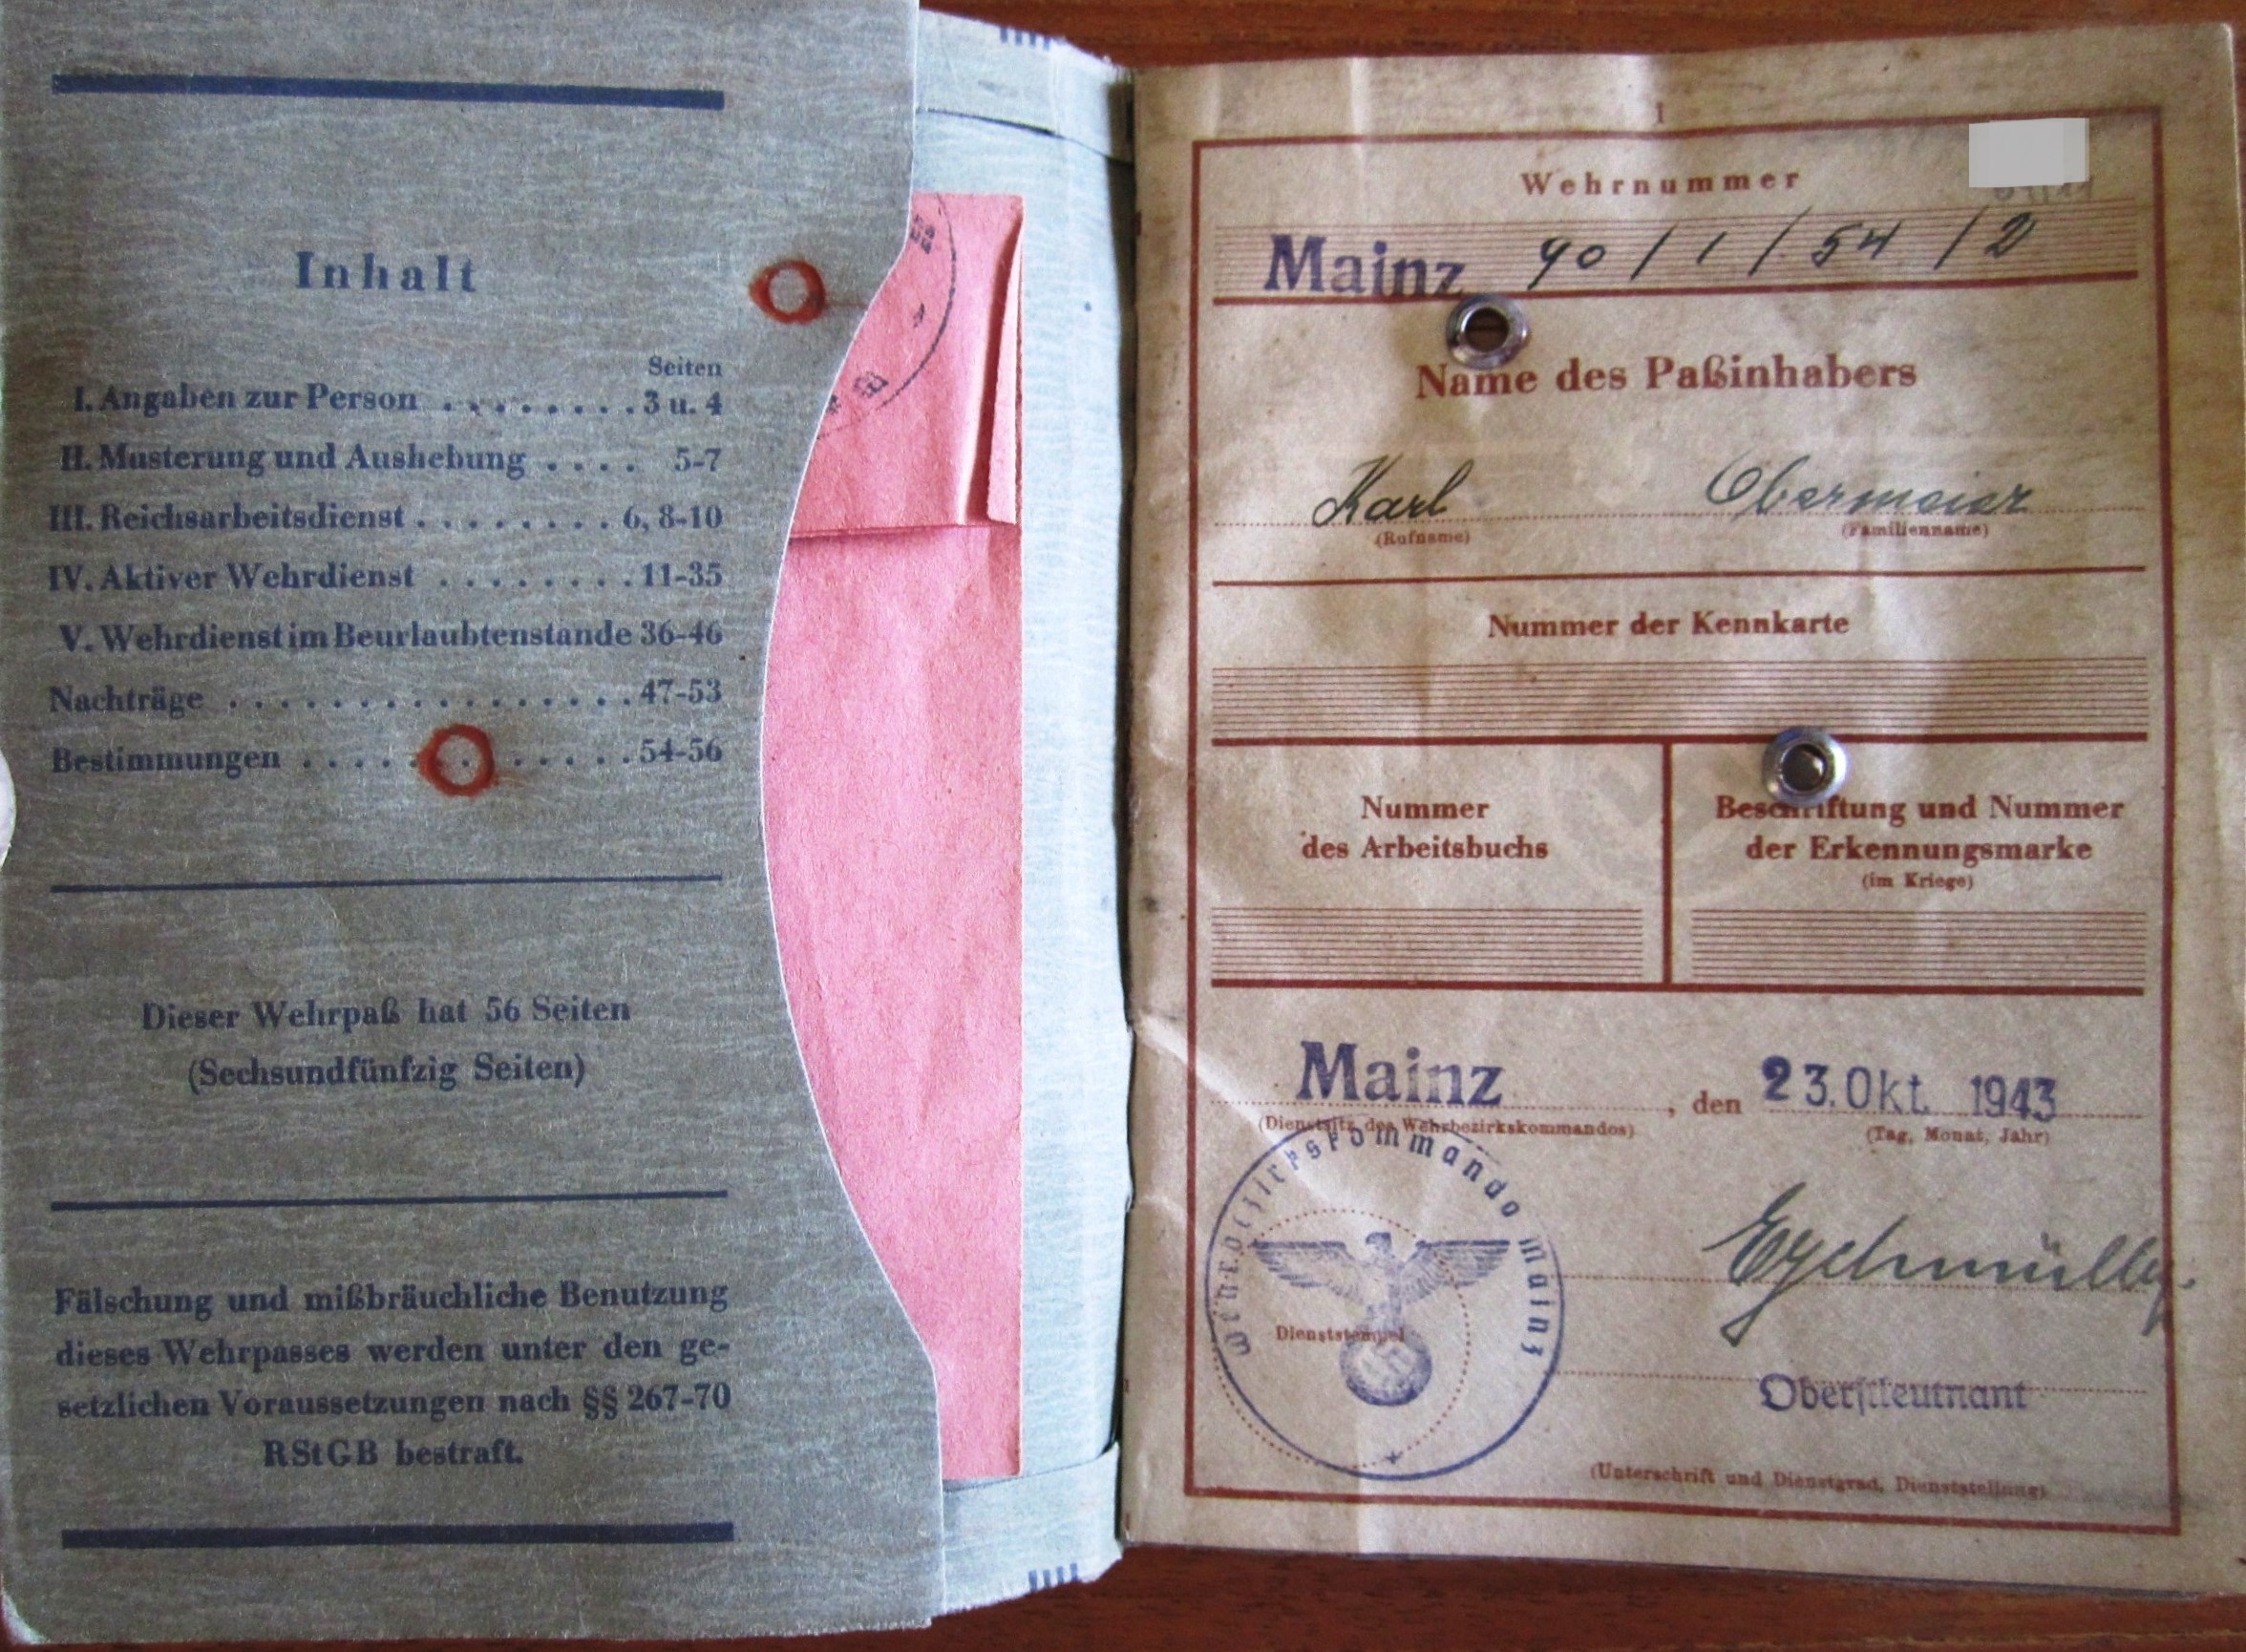 Inhalt
Seiten
I. Angaben zur Person . . . . . . . . 3 u. 4
II. Musterung und Aushebung . . . . 5-7
III. Reichsarbeitsdienst . . . . . . . . 6, 8-10
IV. Aktiver Wehrdienst . . . . . . . . 11-35
V. Wehrdienst im Beurlaubtenstande 36-46
Nachträge . . . . . . . . . . . . . . . . 47-53
Bestimmungen . . . . . . . . . . . . . 54-56
Dieser Wehrpaß hat 56 Seiten
(Sechsundfünfzig Seiten)
Fälschung und mißbräuchliche Benutzung
dieses Wehrpasses werden unter den ge-
setzlichen Voraussetzungen nach §§ 267-70
RStGB bestraft.
1
Wehrnummer
Mainz 90 / 1 / 54 / 2
Name des Paßinhabers
Karl Obermeier
(Rufname) (Familienname)
Nummer der Kennkarte
Nummer
des Arbeitsbuchs
Beschriftung und Nummer
der Erkennungsmarke
(im Kriege)
Mainz , den 23. Okt. 1943
(Dienstsitz des Wehrbezirkskommandos) (Tag, Monat, Jahr)
Wehrbezirkskommando Mainz
Dienststempel
Oberstleutnant
(Unterschrift und Dienstgrad, Dienststellung)